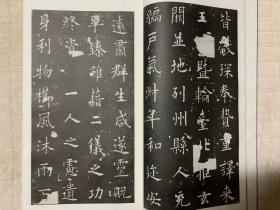 皆獻琛奉贄重譯來
王暨輪臺拒玄
闕並地列州縣人充
編戶氣淑年和迩安
遠肅群生咸遂靈貺
畢臻雖藉二儀之功
終資一人之慮遺
身利物櫛風沐雨